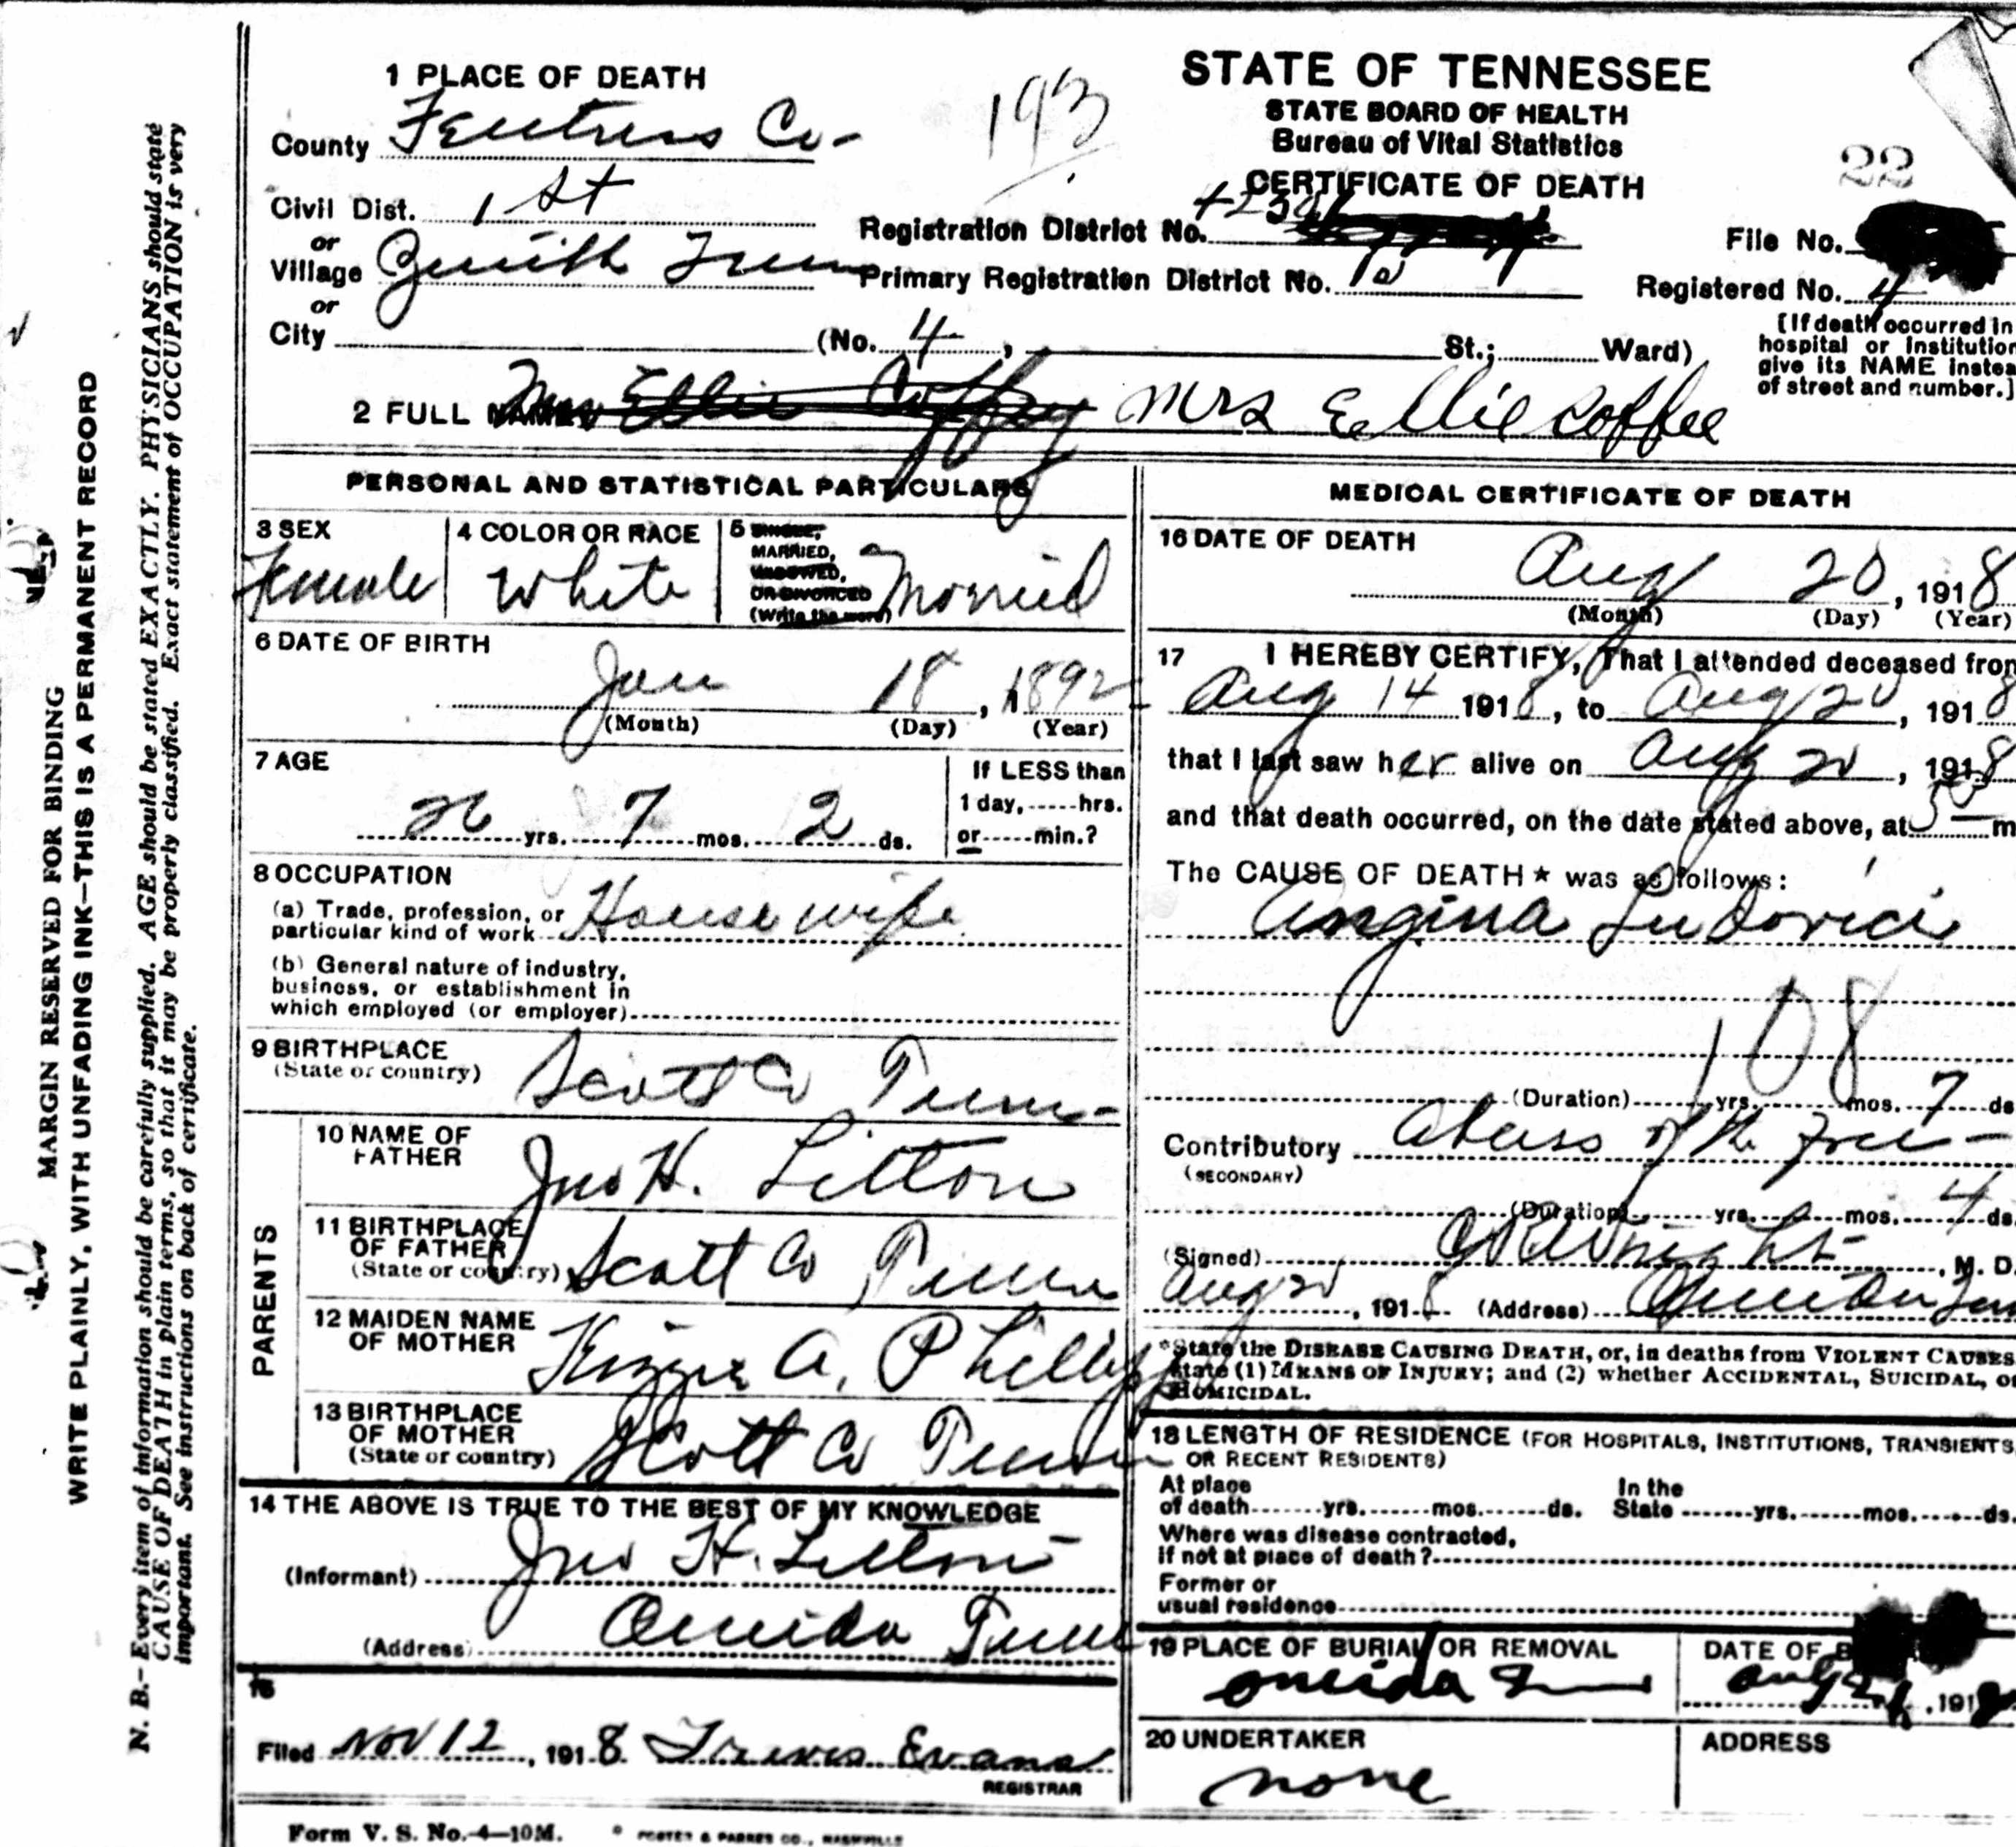 1 PLACE OF DEATH
County Fentress Co-
Civil Dist. 1 St
or
Village Zenith Tenn
or
City (No. 4, St.; Ward)
193
STATE OF TENNESSEE
STATE BOARD OF HEALTH
Bureau of Vital Statistics
CERTIFICATE OF DEATH
22
Registration District No.
File No.
Primary Registration District No.
Registered No. 4
[If death occurred in
hospital or institution
give its NAME instea
of street and number.]
2 FULL NAME Mrs Ellie Coffey Mrs Ellie Coffee
PERSONAL AND STATISTICAL PARTICULARS
3 SEX
Female
4 COLOR OR RACE
White
5 SINGLE,
MARRIED,
WIDOWED,
OR DIVORCED
(Write the word)
Married
6 DATE OF BIRTH
Jan 18, 1892
(Month) (Day) (Year)
7 AGE
26 yrs. 7 mos. 2 ds.
If LESS than
1 day, hrs.
or min.?
8 OCCUPATION
(a) Trade, profession, or
particular kind of work House wife
(b) General nature of industry,
business, or establishment in
which employed (or employer)
9 BIRTHPLACE
(State or country) Scott Co Tenn-
PARENTS
10 NAME OF
FATHER
Jno H. Litton
11 BIRTHPLACE
OF FATHER
(State or country) Scott Co Tenn
12 MAIDEN NAME
OF MOTHER
Kizzie A. Phillips
13 BIRTHPLACE
OF MOTHER
(State or country) Scott Co Tenn
14 THE ABOVE IS TRUE TO THE BEST OF MY KNOWLEDGE
(Informant) Jno H. Litton
(Address) Oneida Tenn
15
Filed Nov 12, 1918 Evans
REGISTRAR
Form V. S. No.-4-10M.
FOSTER & PARKES CO., NASHVILLE
MEDICAL CERTIFICATE OF DEATH
16 DATE OF DEATH
Aug 20, 1918
(Month) (Day) (Year)
17 I HEREBY CERTIFY, That I attended deceased from
Aug 14 1918, to Aug 20, 1918
that I last saw her alive on Aug 20, 1918
and that death occurred, on the date stated above, at m
The CAUSE OF DEATH * was as follows:
Angina Ludovici
108
(Duration) yrs. mos. 7 ds
Contributory
(SECONDARY)
(Duration) yrs. mos. 4 ds.
(Signed) , M. D.
Aug 20, 1918 (Address) Oneida Tenn
*State the DISEASE CAUSING DEATH, or, in deaths from VIOLENT CAUSES
state (1) MEANS OF INJURY; and (2) whether ACCIDENTAL, SUICIDAL, or
HOMICIDAL.
18 LENGTH OF RESIDENCE (FOR HOSPITALS, INSTITUTIONS, TRANSIENTS,
OR RECENT RESIDENTS)
At place
of death yrs. mos. ds.
In the
State yrs. mos. ds.
Where was disease contracted,
if not at place of death?
Former or
usual residence
19 PLACE OF BURIAL OR REMOVAL
Oneida
DATE OF B
Aug , 1918
20 UNDERTAKER
none
ADDRESS
MARGIN RESERVED FOR BINDING
WRITE PLAINLY, WITH UNFADING INK—THIS IS A PERMANENT RECORD
N. B.—Every item of information should be carefully supplied. AGE should be stated EXACTLY. PHYSICIANS should state
CAUSE OF DEATH in plain terms, so that it may be properly classified. Exact statement of OCCUPATION is very
important. See instructions on back of certificate.